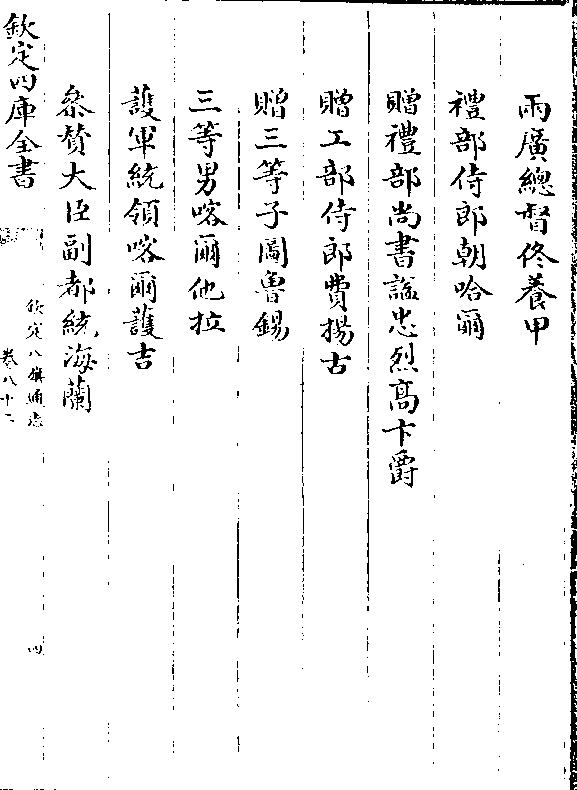 兩廣總督佟養甲
禮部侍郎朝哈爾
贈禮部尚書諡忠烈高卞爵
贈工部侍郎費揚古
贈三等子圖魯錫
三等男喀爾他拉
護軍統領喀爾護吉
叅贊大臣副都統海蘭
欽定四庫全書
欽定八旗通志
卷八十二
四